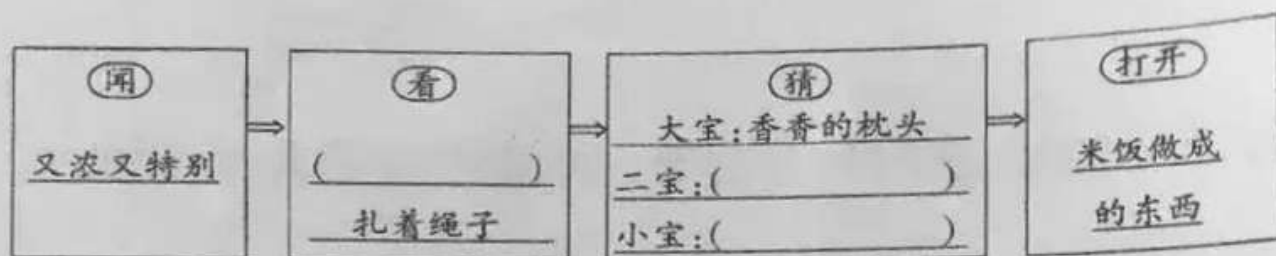 闻
又浓又特别
看
(　　　　　)
扎着绳子
猜
大宝:香香的枕头
二宝:(　　　　　)
小宝:(　　　　　)
打开
米饭做成
的东西